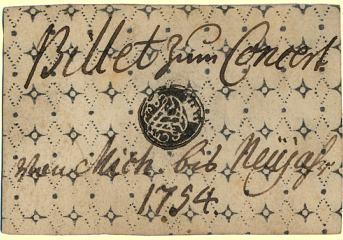 Billet zum Concert
von Mich. bis Neüjahr
1754.